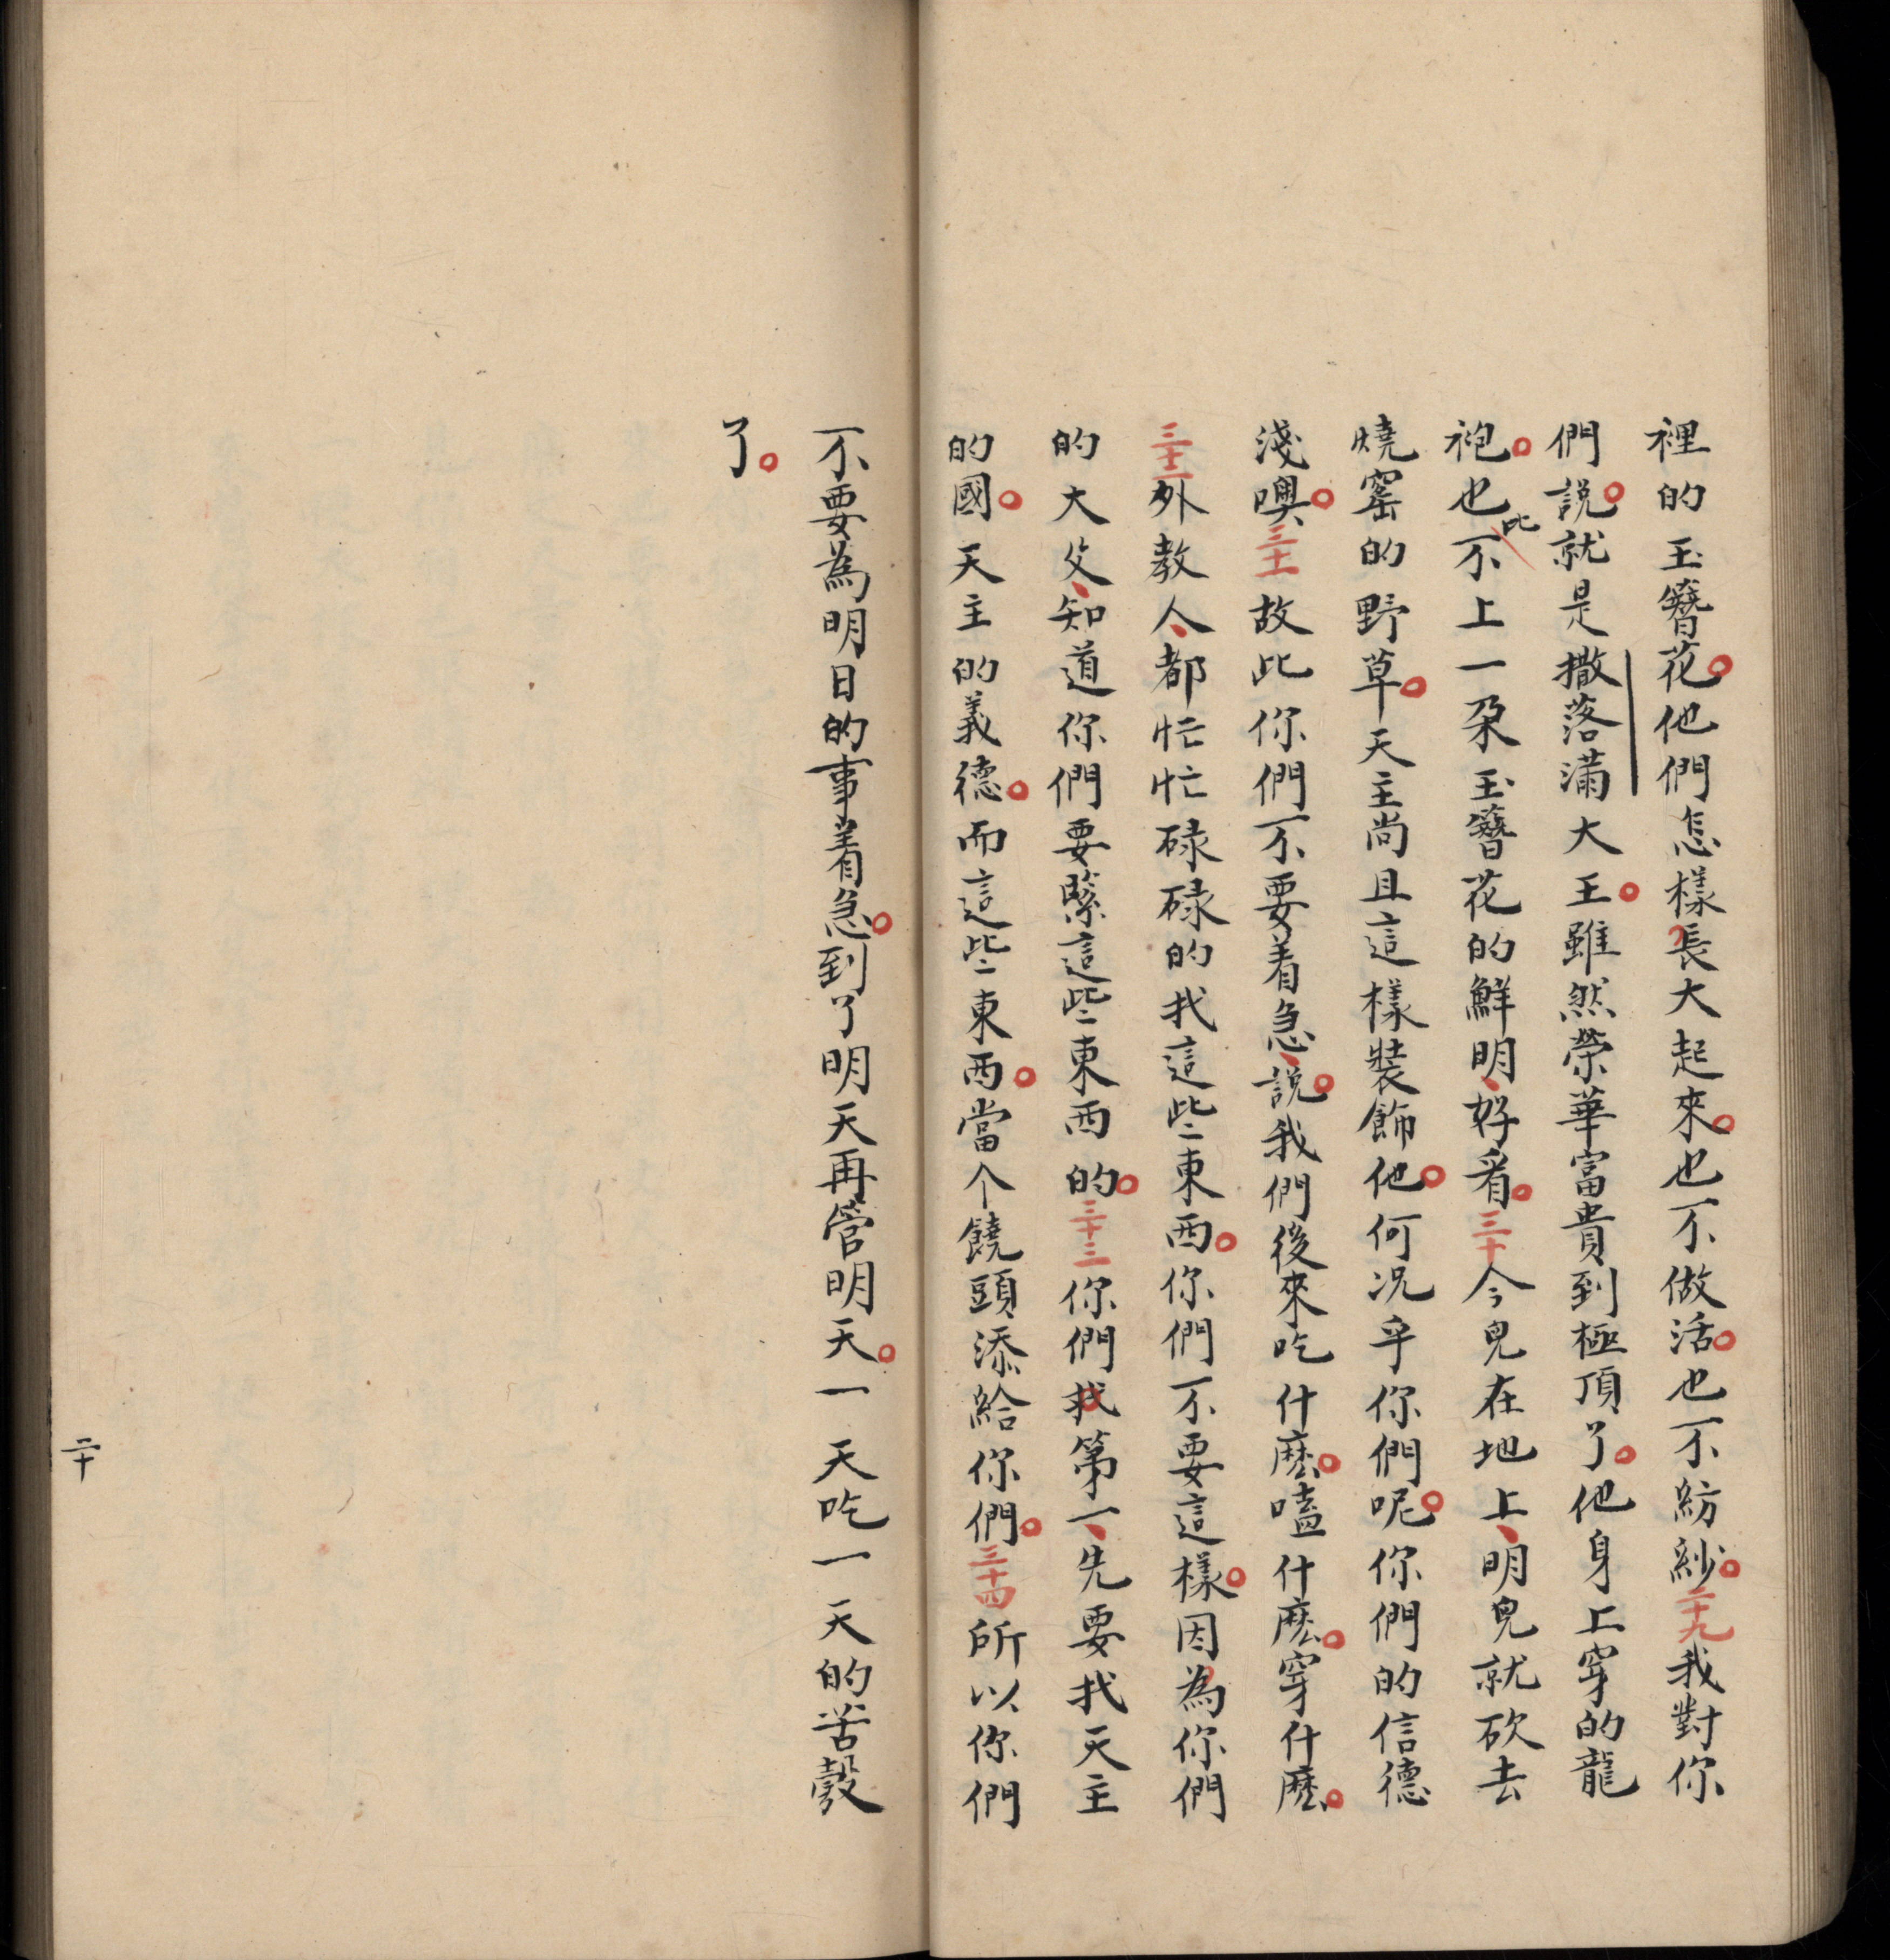 裡的玉簪花。他們怎樣長大起來。也不做活。也不紡紗。二十九我對你
們說。就是撒落滿大王。雖然榮華富貴到極頂了。他身上穿的龍
袍。也比不上一朶玉簪花的鮮明、好看。三十今兒在地上、明兒就砍去
燒窰的野草。天主尚且這樣裝飾他。何况乎你們呢。你們的信德
淺噢。三十一故此你們不要着急、說。我們後來吃什麽。嗑什麽。穿什麽。
三十二外教人、都忙忙碌碌的找這些東西。你們不要這樣。因為你們
的大父、知道你們要緊這些東西的。三十三你們找第一、先要找天主
的國。天主的義德。而這些東西。當个饒頭添給你們。三十四所以你們
不要為明日的事着急。到了明天再管明天。一天吃一天的苦彀
了。
二十